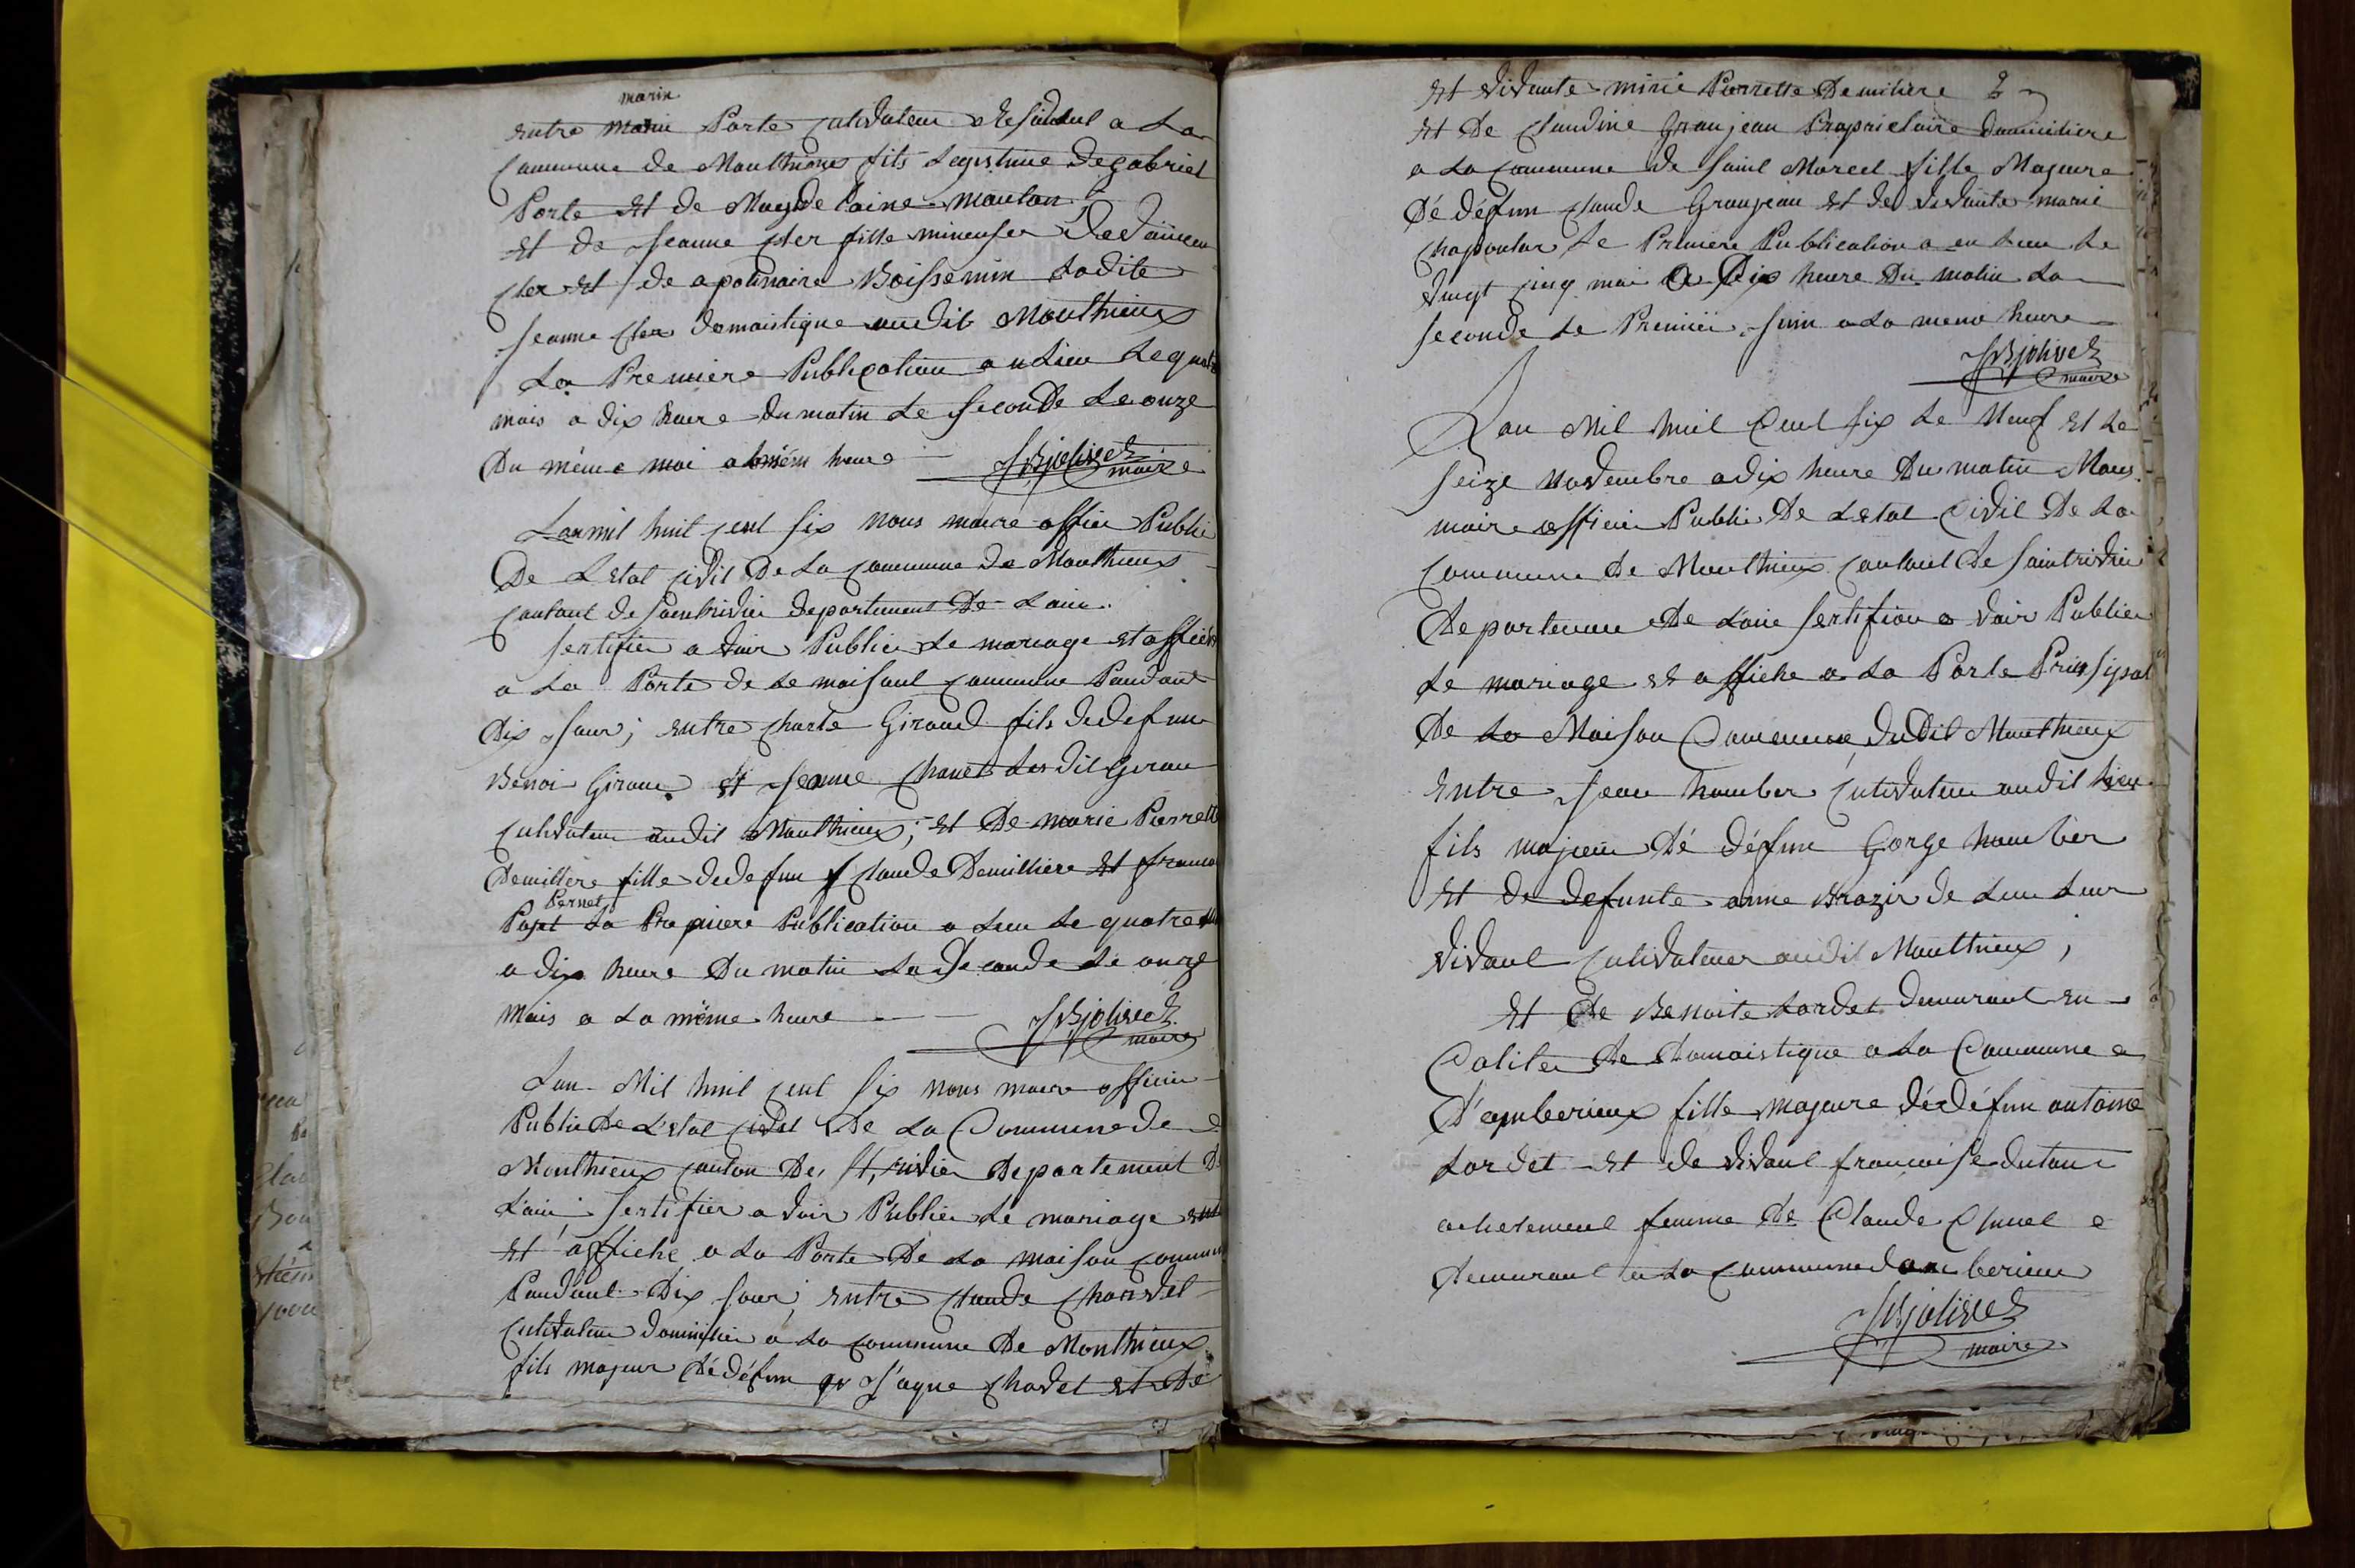 marin
entre marin Porte cultivateur residant a La
commune de Monthieux fils Legistime de gabriel
Porte et de Magdelaine mouton
et de jeanne cler fille mineuse de
cler et de apolinaire Boissenin Ladite
jeanne cler domaistique audit Monthieux
La Premiere Publication a u Lieu Le quatre
mais a dix heure du matin Le seconde Le onze
Du même moi a heure JBjolivet
maire
Lan mil huit cent six nous maire officie Publie
De Letat civil De La commune de Monthieux
cantont de saintrivier departement De Lain
sertifier a voir Publier Le mariage et affiche
a La Porte de Le maisont commune Pandant
Dix jour; entre charle Giraud fils de defun
Benoi Giraud et jeanne chanet Les dit Girau
cultivateur audit Monthieux; et De marie Pierrette
Demillere fille de defun f claude Demilliere et
Pernet
La Premiere Publication a Lieu Le quatre
a dix heure Du matin La seconde Le onze
mais a La même heure JBjolivet
maire
Lan Mil huit cent six nous maire officie
Publie De L'etat civil De La Commune de
Monthieux canton De St rivier Departement D
L'ain sertifier a voir Publier Le mariage
et affiche a La Porte De La maison commune
Pandant Dix jour; entre claude chardet
cultivateur domicilier a La commune De Monthieux
fils majeur dé défun j'aque chadet et De
et vivante marie Pierrette Demiliere
et De claudine Granjean Proprietaire domiciliere
a La commune De saint Marcel fille Majeure
Dé défun claude Granjean et de vivante marie
Le Premiere Publication a eu Lieu Le
vingt cinq mai a Dix heure Du matin La
seconde Le Premier juin a La meme heure
JBjolivet
maire
Lan Mil huit Cent six Le Neuf et Le
seize novembre a dix heure Du matin Nous
maire officie Publie De Letat Civil De La
commune De Monthieux cantont de saintrivier
Departemen De L'ain sertifion a voir Publier
Le mariage et affiche a La Porte Prinsipal
De La Maison Commune dudit Monthieux
entre jean humber cultivateur audit Lieu
fils majeur dé défun Gorge humber
et de defunte anne Brazir de Leur
vivant cultivateur audit Monthieux,
et De Benoite Lardet demurant en
Caliter De domaistique a La Commune
D'amberieux fille majeure dé défun antoine
Lardet et de vivant francoise dutans
achetement femme De Claude
demurant a La commune damberieux
JBjolivet
maire